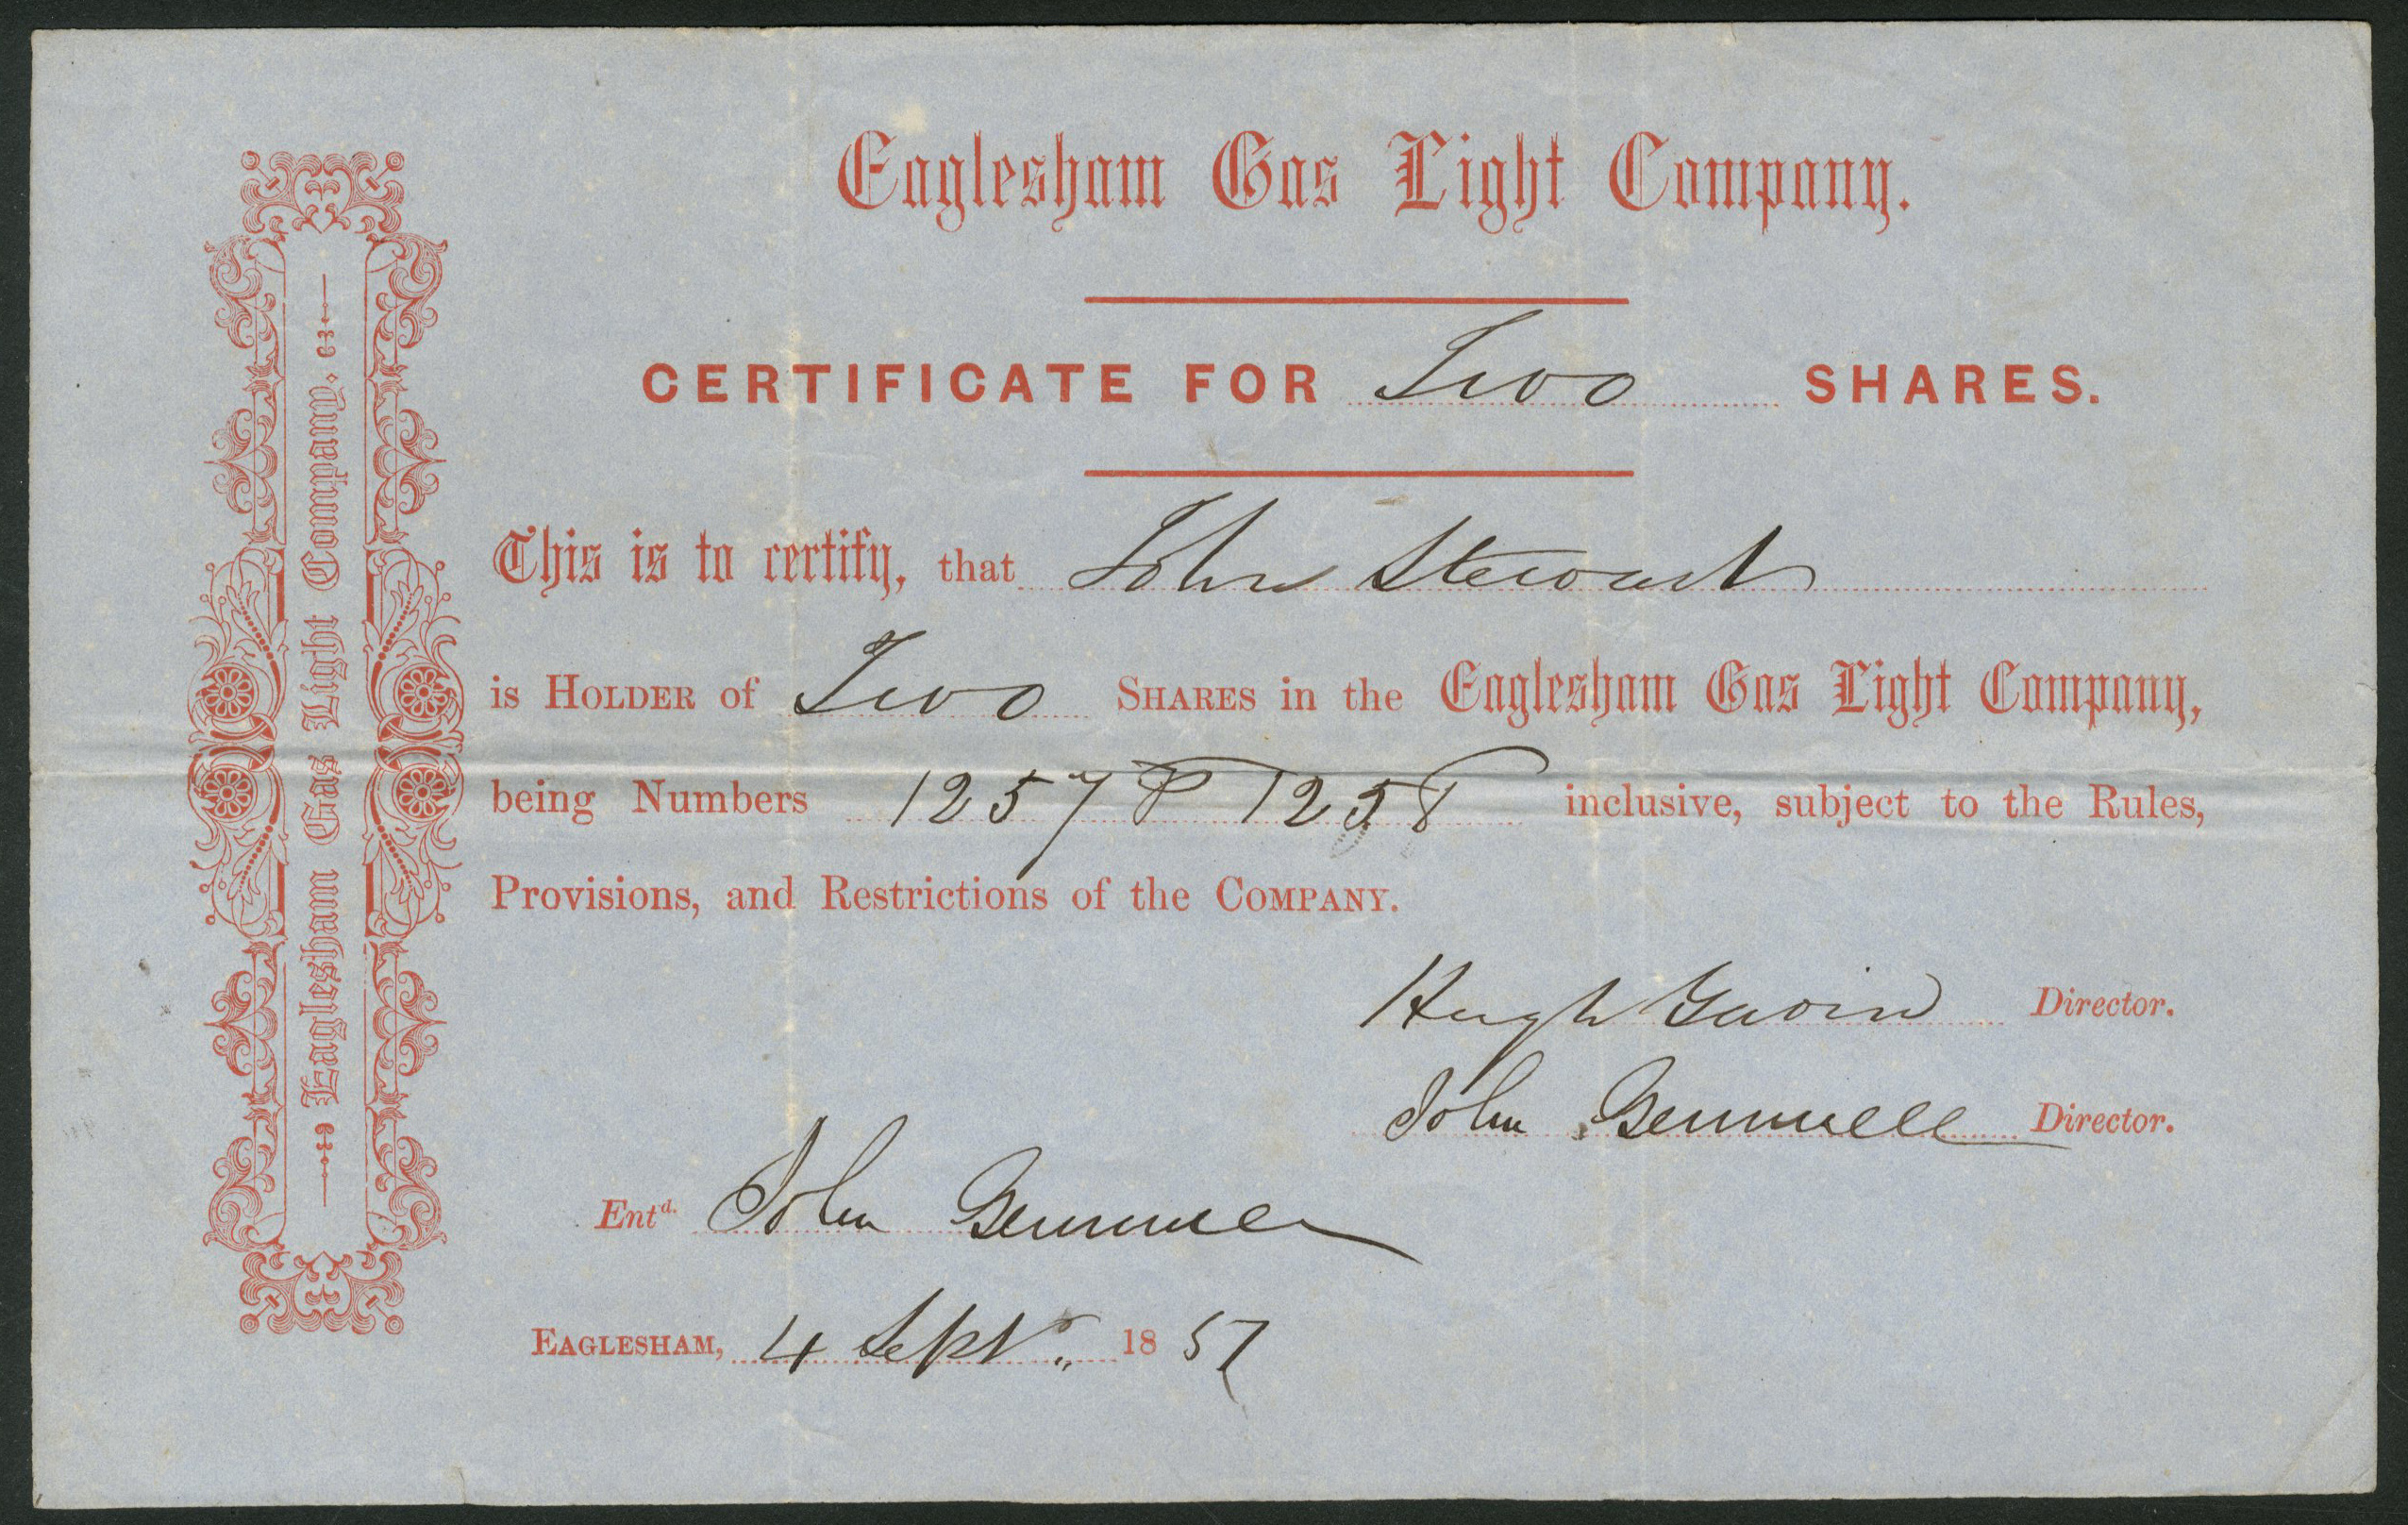 Eaglesham Gas Light Company.
CERTIFICATE FOR Two SHARES.
This is to certify, that John Stewart
is HOLDER of Two SHARES in the Eaglesham Gas Light Company,
being Numbers 1257 & 1258 inclusive, subject to the Rules,
Provisions, and Restrictions of the COMPANY.
Hugh Gavin Director.
John Gemmell Director.
Entd. John Gemmell
EAGLESHAM, 4 Sept. 1857
Eaglesham Gas Light Company.